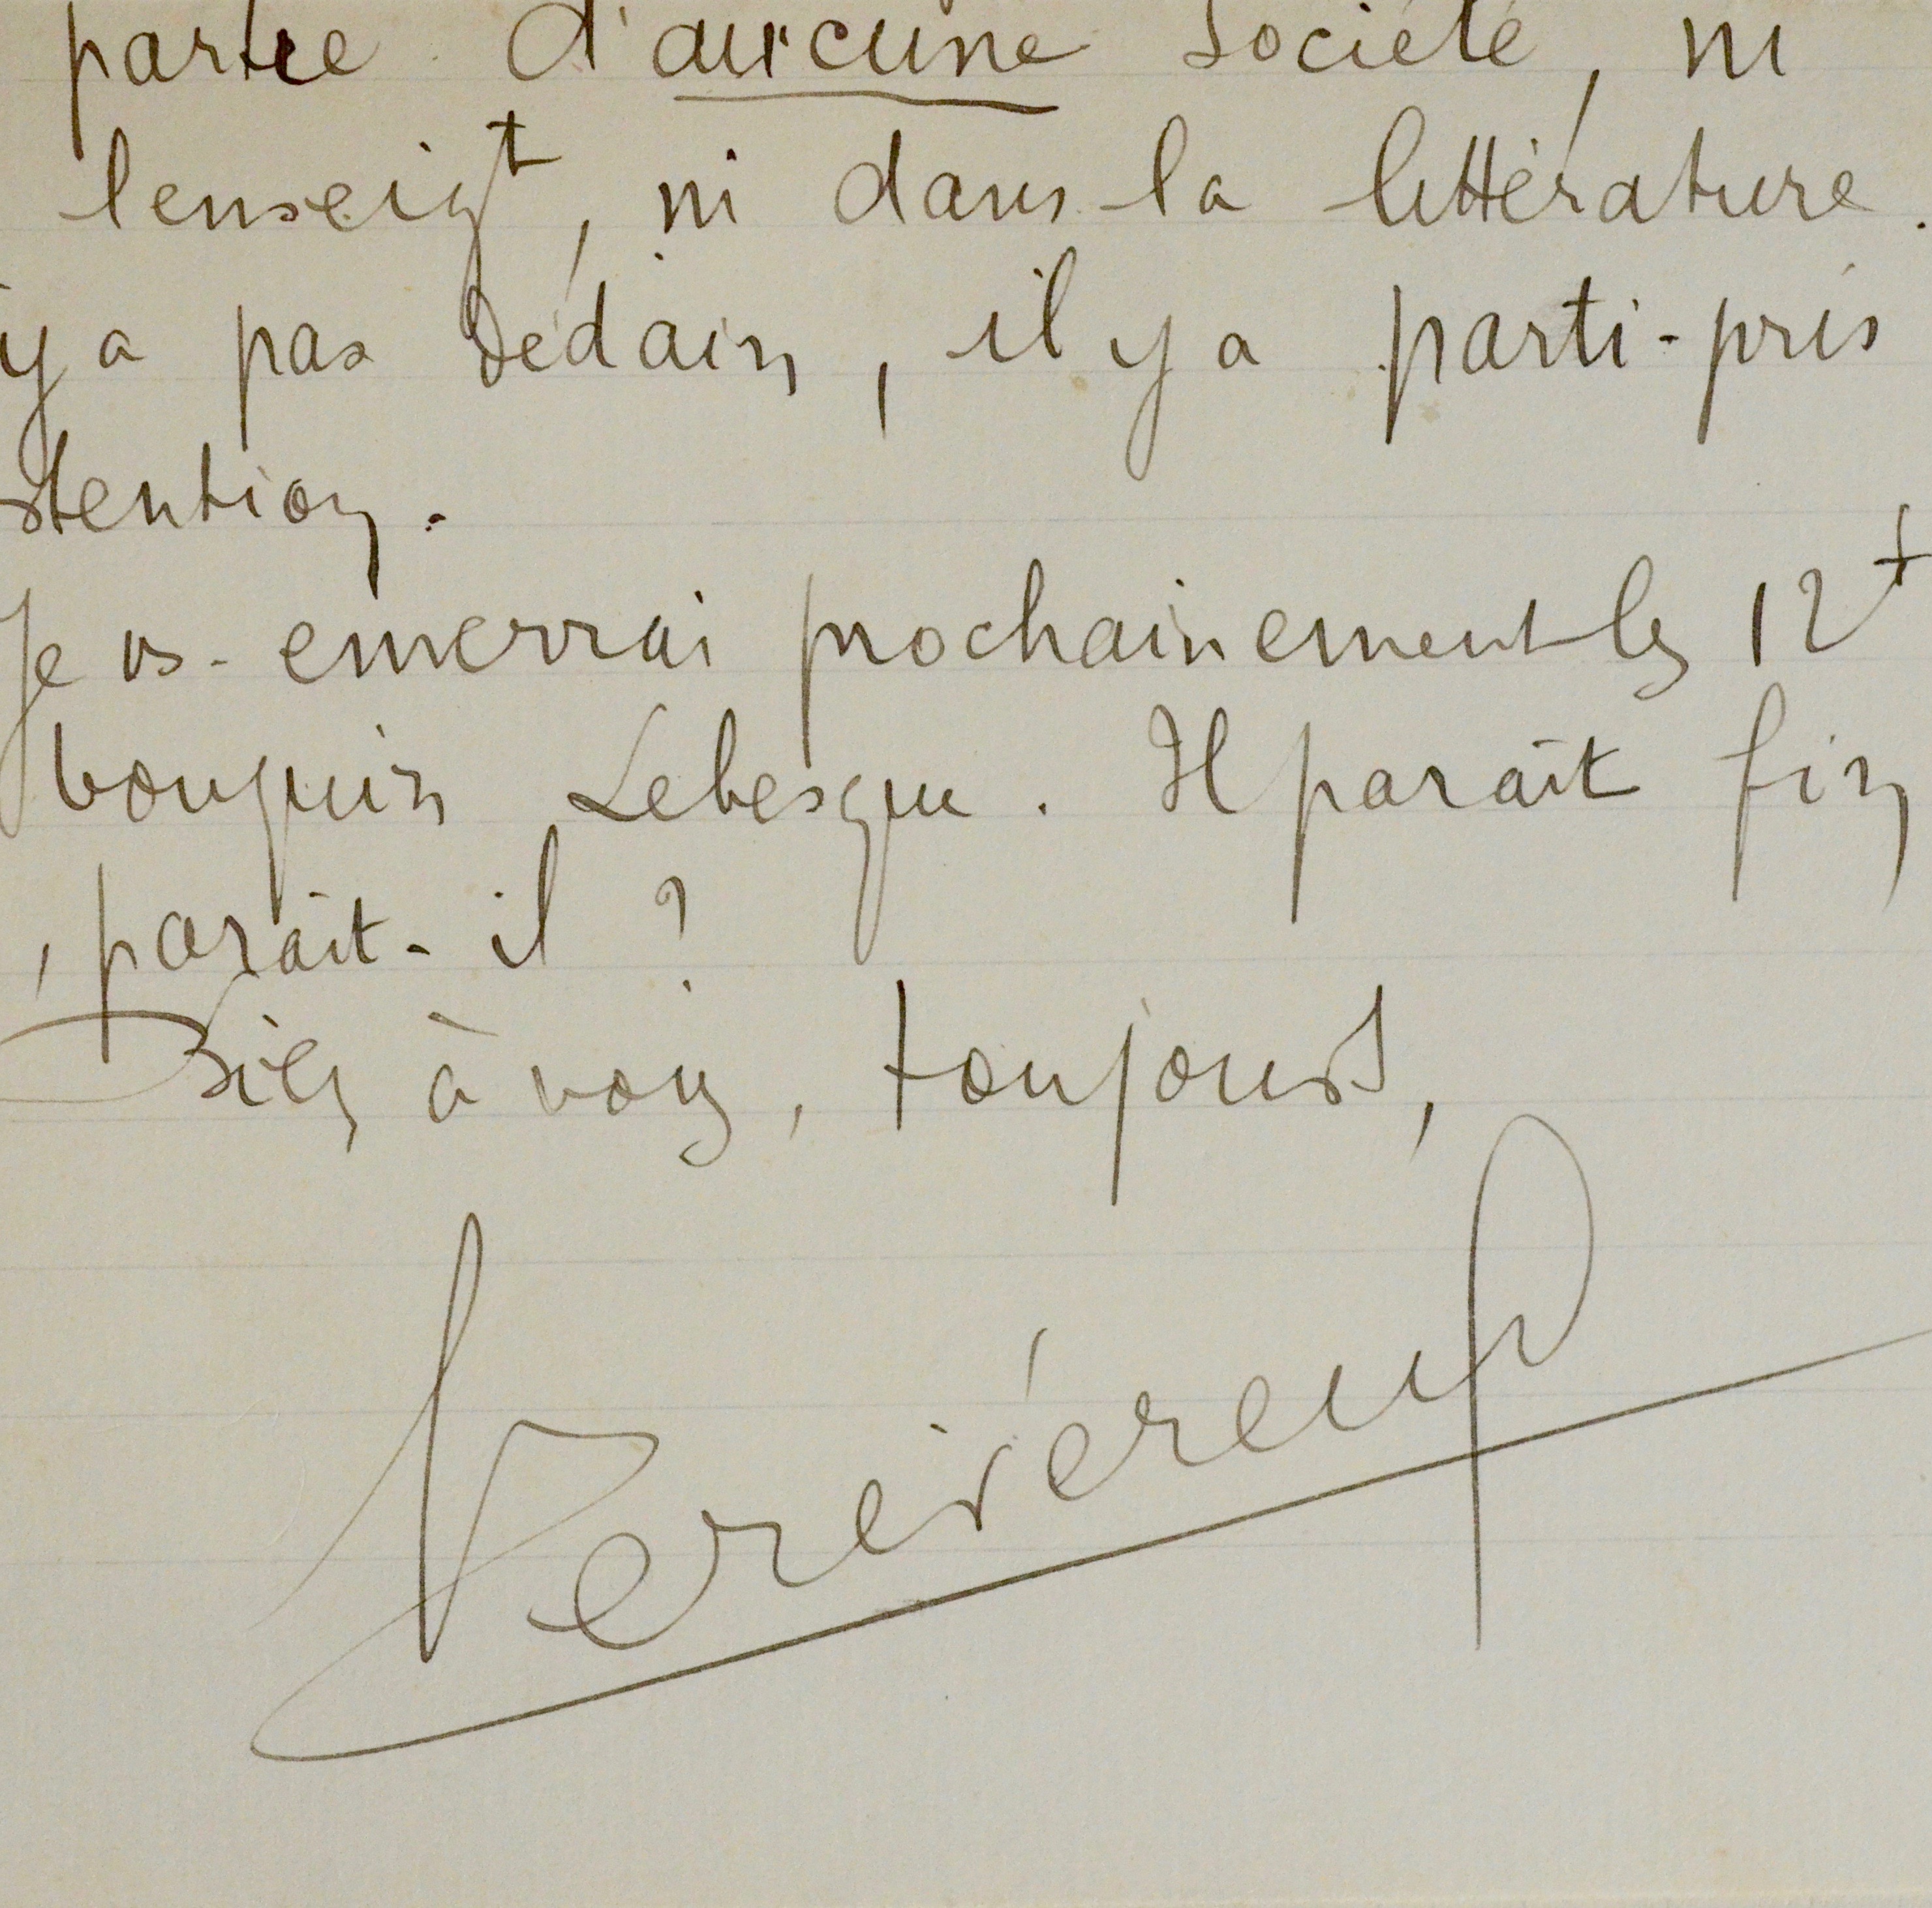 partie d'aucune société, ni
lenseigt, ni dans la littérature.
y a pas dédain, il y a parti-pris
stention.
Je vs. enverrai prochainement les 12f
bouquin Lebesgue. Il paraît fin
, paraît-il ?
Bien à vous, toujours,